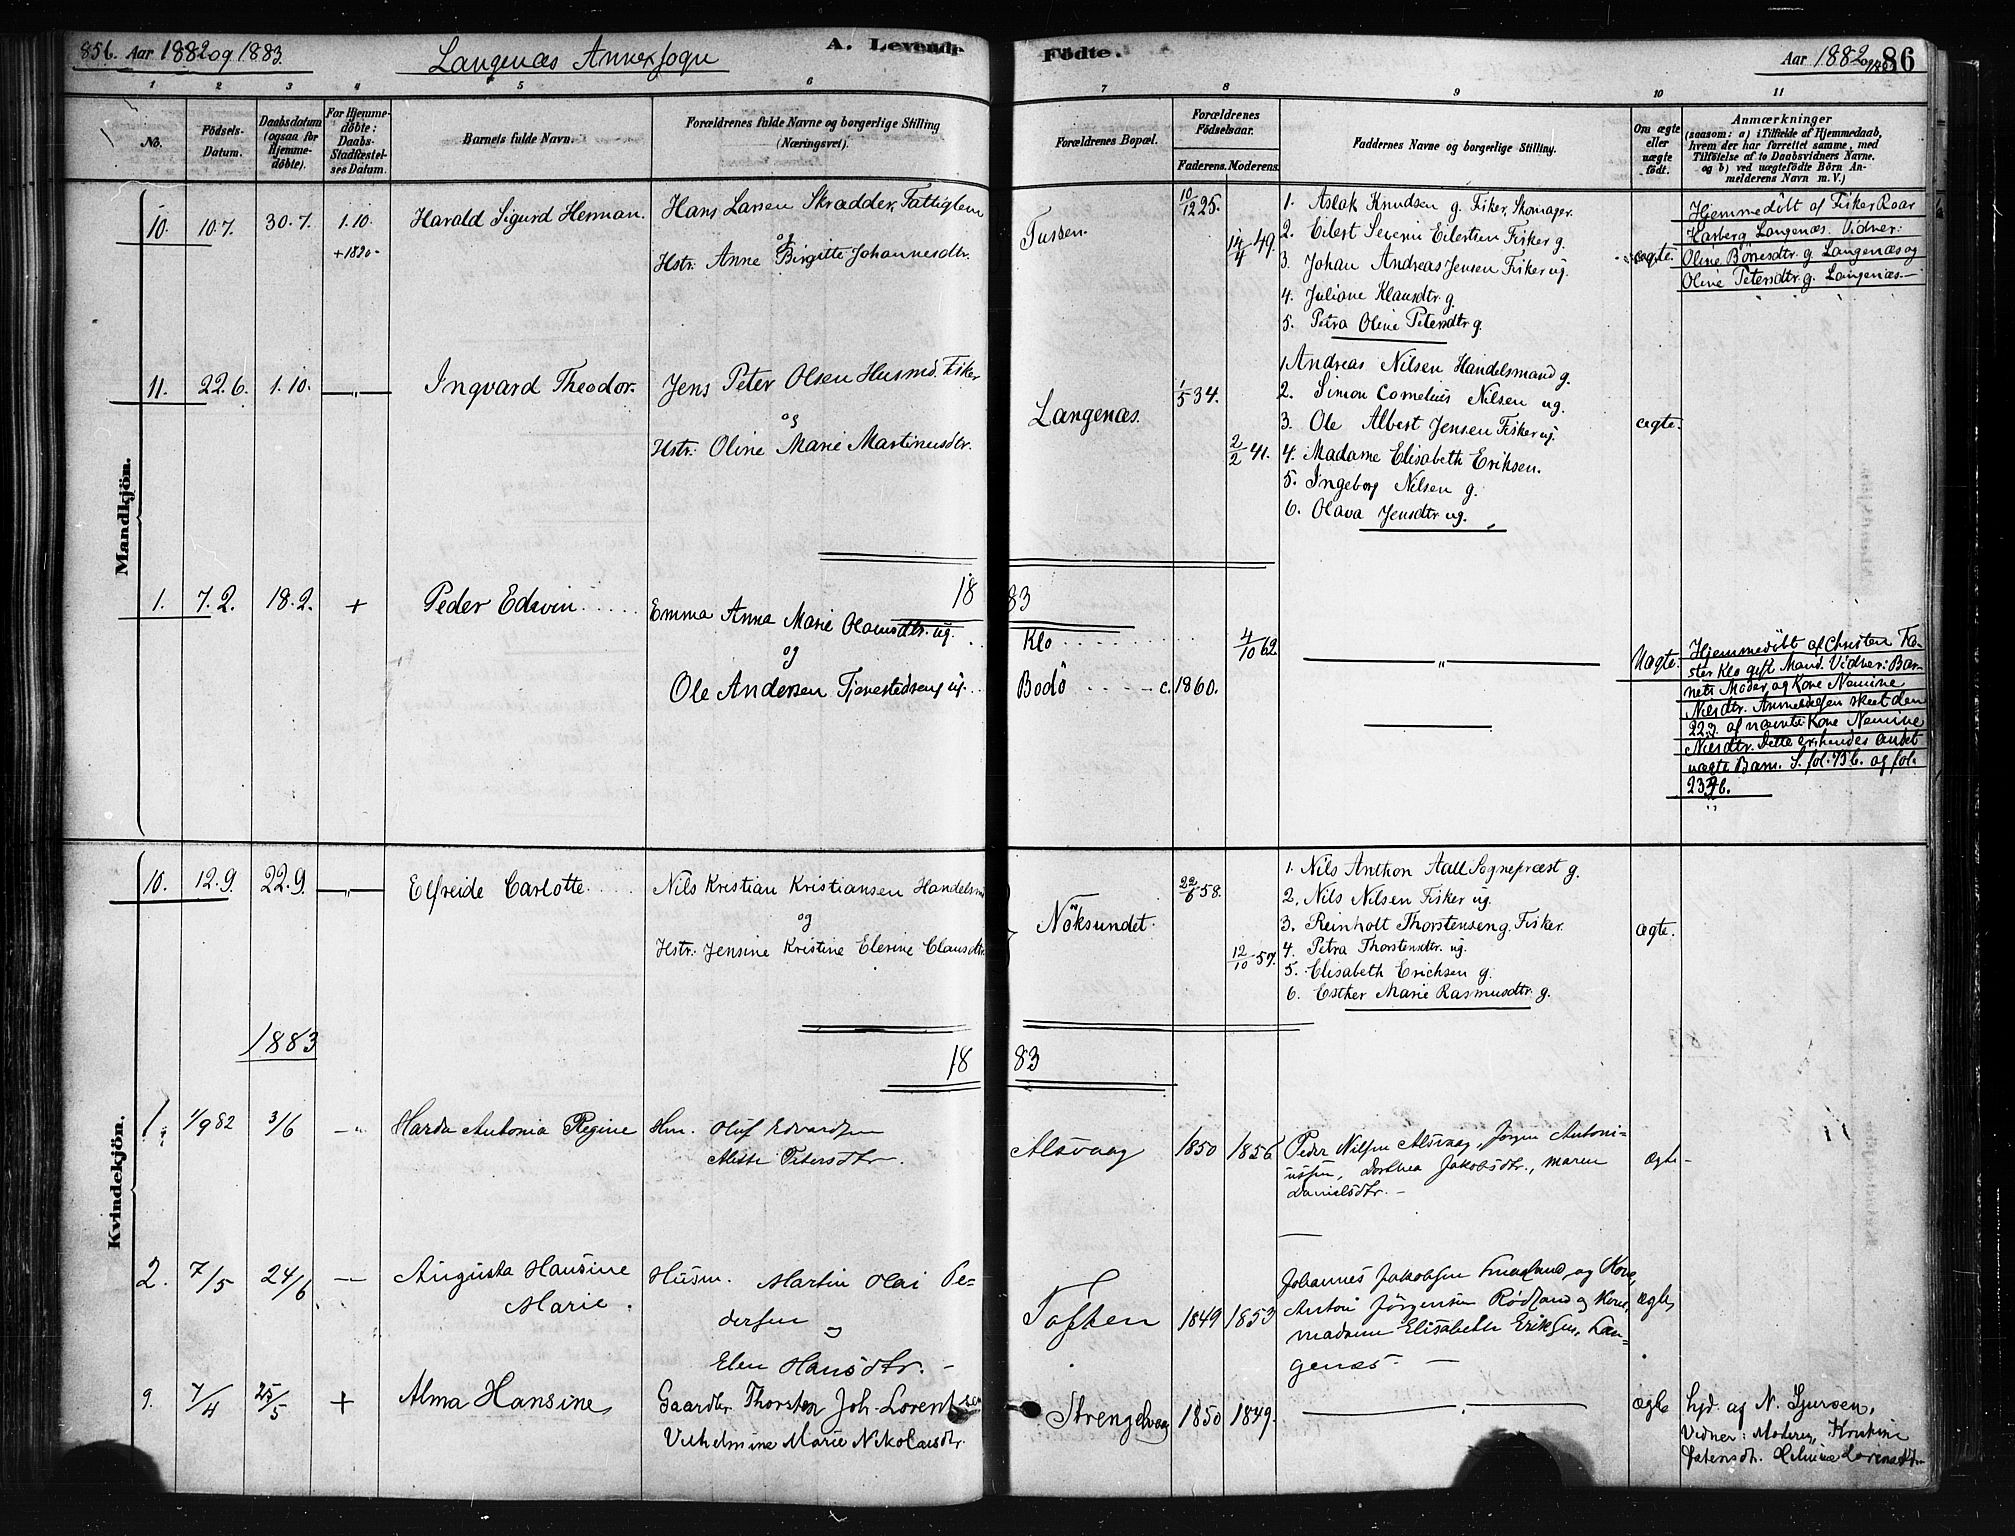 85 b. Aar 1882 og 1883.
Langenæs Annexsogn
A. Levende
Fødte.
Aar 1882 og 1883
86
1 2 3 4 5 6 7 8 9 10 11
No.
Födsels-
Datum.
Daabsdatum
(ogsaa for
Hjemme-
döbte).
For Hjemme-
döbte:
Daabs-
Stadfæstel-
ses Datum.
Barnets fulde Navn.
Forældrenes fulde Navne og borgerlige Stilling
(Næringsvei).
Forældrenes Bopæl.
Forældrenes
Födselsaar.
Faderens. Moderens.
Faddernes Navne og borgerlige Stilling.
Om ægte
eller
uægte
født.
Anmærkninger
(saasom: a) i Tilfælde af Hjemmedaab,
hvem der har forrettet samme, med
Tilföielse af to Daabsvidners Navne,
og b) ved uægtefödte Börn An-
melderens Navn m. V.)
Mandkjön.
10. 10.7. 30.7. 1.10. Harald Sigurd Herman. Hans Larsen Skrædder, Fattiglem
+1820-
og
Hstr: Anne Birgitte Johannesdtr.
Tussen.
10/12 25.
14/4 49.
1. Aslak Knudsen g. Fisker, Skomager.
2. Eilert Severin Eilertsen Fisker g.
3. Johan Andreas Jensen Fisker ug.
4. Juliane Klausdtr g.
5. Petra Oline Petersdtr g.
ægte.
Hjemmedöbt af Fisker Roar
Harberg Langenæs. Vidner:
Oline Börresdtr. g. Langenæs og
Oline Petersdtr g. Langenæs.
11. 22.6. 1.10. —"— Ingvard Theodor. Jens Peter Olsen Husmd. Fisker
og
Hstr: Oline Marie Martinusdtr.
Langenæs.
1/5 34.
2/2 41.
1. Andreas Nilsen Handelsmand g.
2. Simon Cornelius Nilsen ug.
3. Ole Albert Jensen Fisker ug.
4. Madame Elisabeth Eriksen.
5. Ingeborg Nilsen g.
6. Olava Jensdtr ug.
ægte.
1883
1. 7.2. 18.2. + Peder Edvin Emma Anna Marie Olausdtr. ug.
og
Ole Andersen Tjenestedreng ug.
Klo
Bodö
4/10 62
c. 1860.
—"—
Uægte.
Hjemmedöbt af Christen Fa-
ster Klo gift Mand. Vidner: Bar-
nets Moder og Kone Nemine
Nilsdtr. Anmeldelsen skeet den
22.3. af nævnte Kone Nemine
Nilsdtr. Dette er hendes andet
uægte Barn. S. fol. 75 b. og fol.
Kvindekjön.
10. 12.9. 22.9. —"— Elfreide Carlotte. Nils Kristian Kristiansen Handelsmd
og
Hstr: Jensine Kristine Elerine Clausdtr.
Nöksundet.
22/6 58.
12/10 57.
1. Nils Anthon Aall Sognepræst g.
2. Nils Nilsen Fisker ug.
3. Reinholt Thorstensen g. Fisker.
4. Petra Thorstensdtr. ug.
5. Elisabeth Erichsen g.
6. Esther Marie Rasmusdtr. g.
ægte.
1883
1883
1. 1/9 82 3/6 —" Harda Antonia Regine Hm. Oluf Edvardsen
Mette Petersdtr.
Alsvaag
1850 1856
Peder Nilsen Alsvaag, Jørgen Antoni-
ussen, Dorthea Jakobsdtr., Maren
Danielsdtr. —
ægte —
2. 7/5 24/6 — Augusta Hansine
Marie.
Husm. Martin Olai Pe-
dersen og
Elen Hansdtr. —
Toften
1849 1853
Johannes Jakobsen Smaaland og Kone,
Anton Jörgensen Rødland og Kone,
madame Elisabeth Eriksen, Lan-
genæs. —
ægte
9. 7/4 25/5 + Alma Hansine Gaardbr Thorsten Joh. Lorentsen
Vilhelmine Marie Nikolaisdtr.
Strengelvaag
1850 1849.
ægte
hjd. af N. Sjursen,
Vidner: Moderen, Kristine